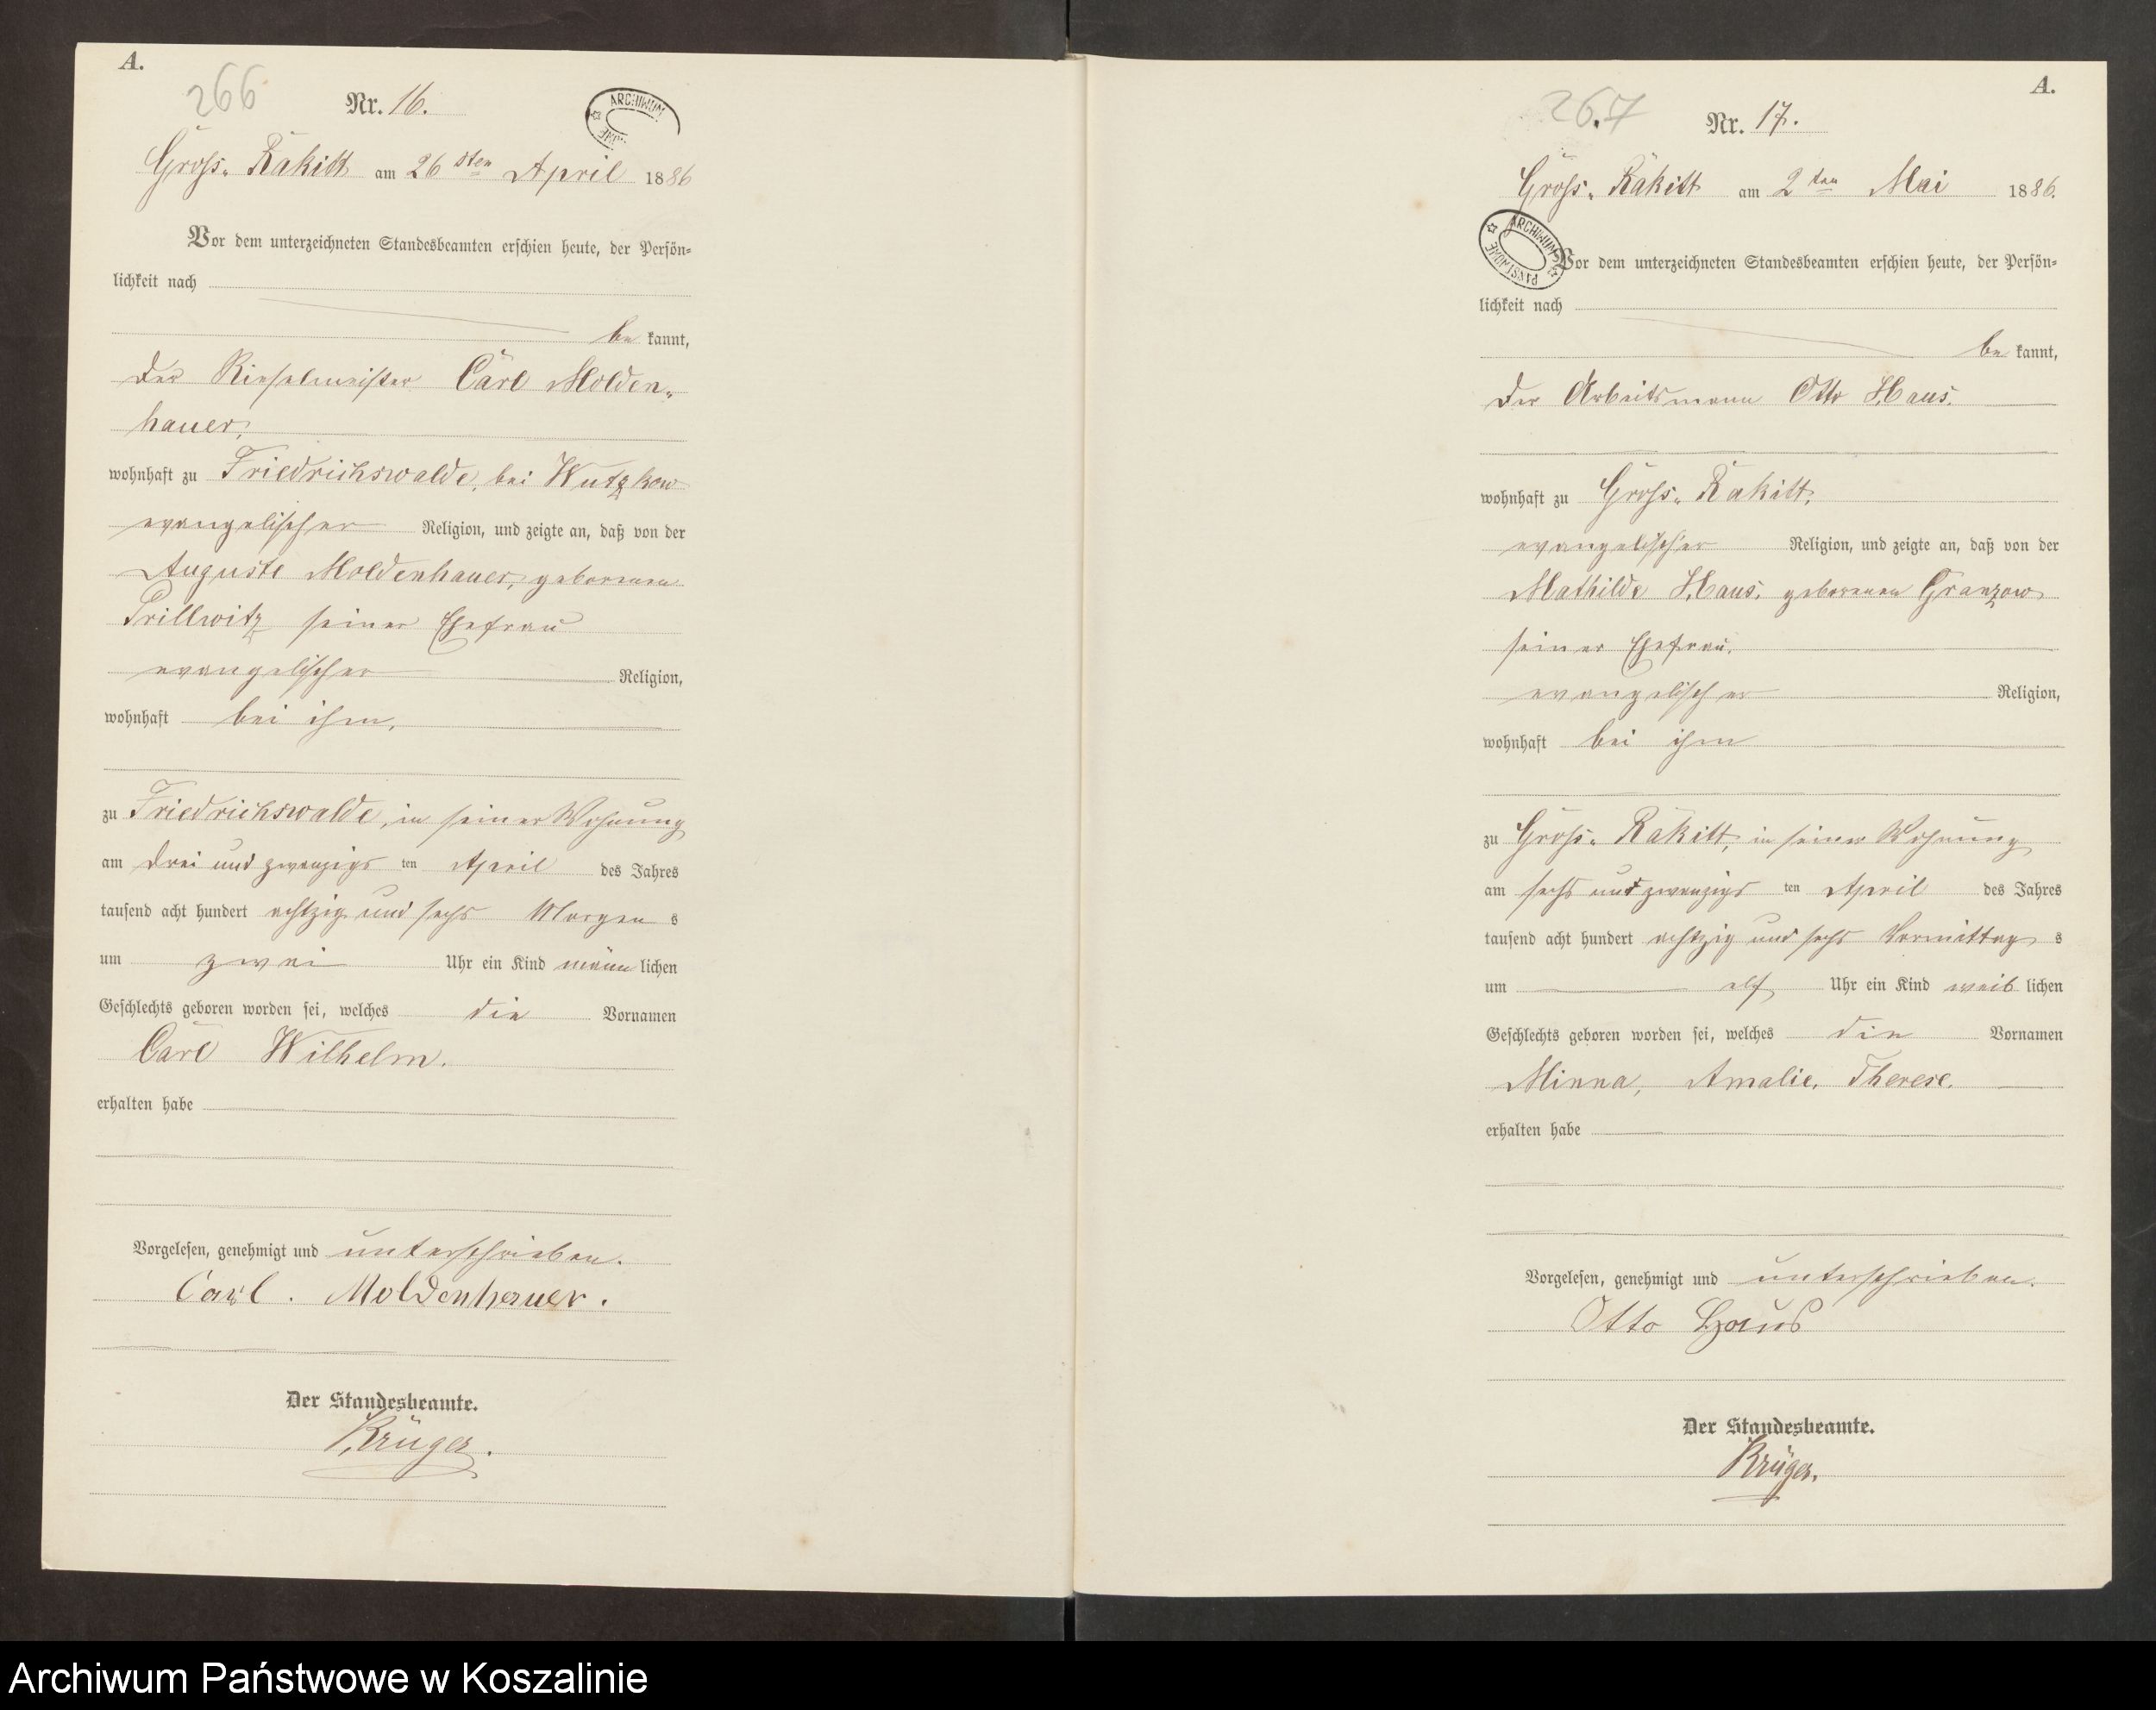 A.
266
Nr. 16.
ARCHIWUM
Gross-Rakitt am 26sten April 1886
Vor dem unterzeichneten Standesbeamten erschien heute, der Persön-
lichkeit nach
be kannt,
der Rieselmeister Carl Molden-
hauer,
wohnhaft zu Friedrichswalde, bei Wutzkow
evangelischer Religion, und zeigte an, daß von der
Auguste Moldenhauer, geborenen
Prillwitz seiner Ehefrau
evangelischer Religion,
wohnhaft bei ihm,
zu Friedrichswalde, in seiner Wohnung
am drei und zwanzigs ten April des Jahres
tausend acht hundert achtzig und sechs Morgen s
um zwei Uhr ein Kind männ lichen
Geschlechts geboren worden sei, welches die Vornamen
Carl Wilhelm.
erhalten habe
Vorgelesen, genehmigt und unterschrieben.
Carl. Moldenhauer.
Der Standesbeamte.
Krüger.
A.
267
Nr. 17.
Gross-Rakitt am 2ten Mai 1886.
ARCHIWUM PAŃSTWOWE
Vor dem unterzeichneten Standesbeamten erschien heute, der Persön-
lichkeit nach
be kannt,
der Arbeitsmann Otto Haus.
wohnhaft zu Gross-Rakitt,
evangelischer Religion, und zeigte an, daß von der
Mathilde Haus, geborenen Granzow
seiner Ehefrau.
evangelischer Religion,
wohnhaft bei ihm
zu Gross-Rakitt, in seiner Wohnung
am sechs und zwanzigs ten April des Jahres
tausend acht hundert achtzig und sechs Vormittag s
um elf Uhr ein Kind weib lichen
Geschlechts geboren worden sei, welches die Vornamen
Minna, Amalie, Therese.
erhalten habe
Vorgelesen, genehmigt und unterschrieben.
Otto Haus
Der Standesbeamte.
Krüger.
Archiwum Państwowe w Koszalinie